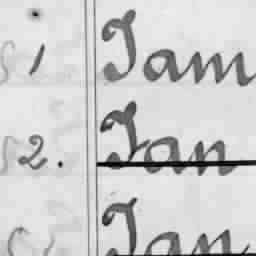 1 Jam
2. Jan
Jan